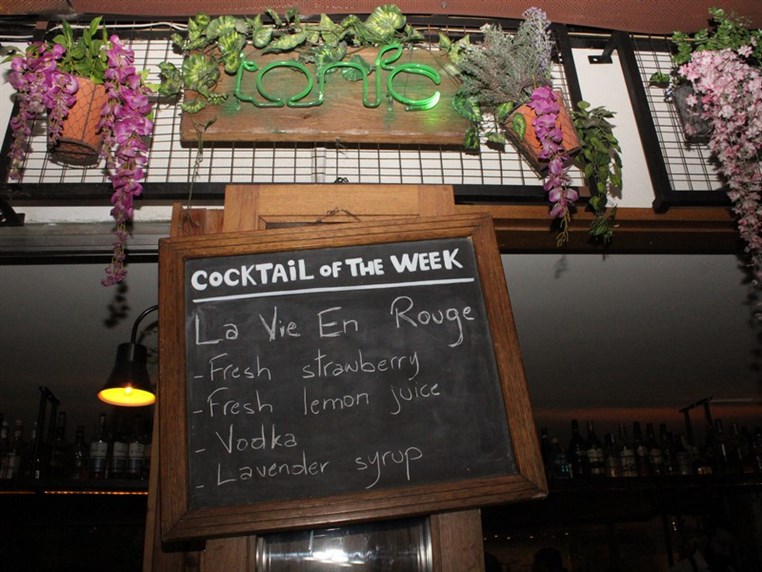 tonic
COCKTAiL OF THE WEEK
La Vie En Rouge
- Fresh strawberry
- Fresh lemon juice
- Vodka
- Lavender syrup